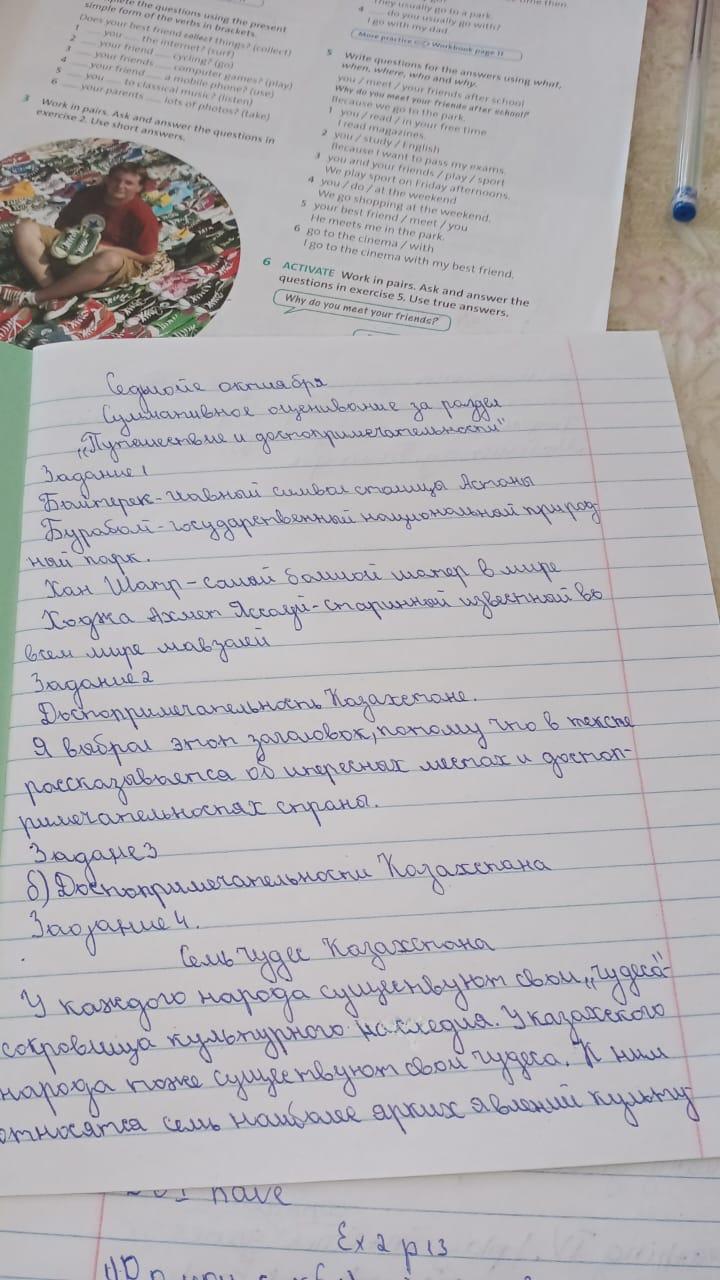 simple form of the verbs in brackets.
Does your best friend collect things? (collect)
1 ___ you ___ the internet? (surf)
2 ___ your friend ___ cycling? (go)
3 ___ your friends ___ computer games? (play)
4 ___ your friend ___ a mobile phone? (use)
5 ___ you ___ to classical music? (listen)
6 ___ your parents ___ lots of photos? (take)
3 Work in pairs. Ask and answer the questions in
exercise 2. Use short answers.
They usually go to a park.
4 ___ do you usually go with?
I go with my dad.
More practice Workbook page 11
5 Write questions for the answers using what,
when, where, who and why.
you / meet / your friends after school
Why do you meet your friends after school?
Because we go to the park.
1 you / read / in your free time
I read magazines.
2 you / study / English
Because I want to pass my exams.
3 you and your friends / play / sport
We play sport on Friday afternoons.
4 you / do / at the weekend
We go shopping at the weekend.
5 your best friend / meet / you
He meets me in the park.
6 go to the cinema / with
I go to the cinema with my best friend.
6 ACTIVATE Work in pairs. Ask and answer the
questions in exercise 5. Use true answers.
Why do you meet your friends?
Седьмойе октября
Суммативное оценивание за раздел
„Путешествие и достопримечательности"
Задание 1
Байтерек-главный символ столицы Астаны
Бурабай-государственный национальный природ
ный парк.
Хан Шатр-самый большой шатер в мире
Ходжа Ахмет Яссауй-старинный известный во
всем мире мавзалей
Задание 2
Достопримечательность Казахстане.
Я выбрал этот заголовок, потому что в тексте
рассказывается об интересных местах и достоп-
римечательностях страны.
Задане 3
б) Достопримечательности Казахстана
Задание 4.
Семь чудес Казахстана
У каждого народа существуют свои „чудеса"-
сокровища культурного наследия. У казахского
народа тоже существуют свои чудеса. К ним
относятся семь наиболее ярких явлений культу
I have
Ex 2 p 13